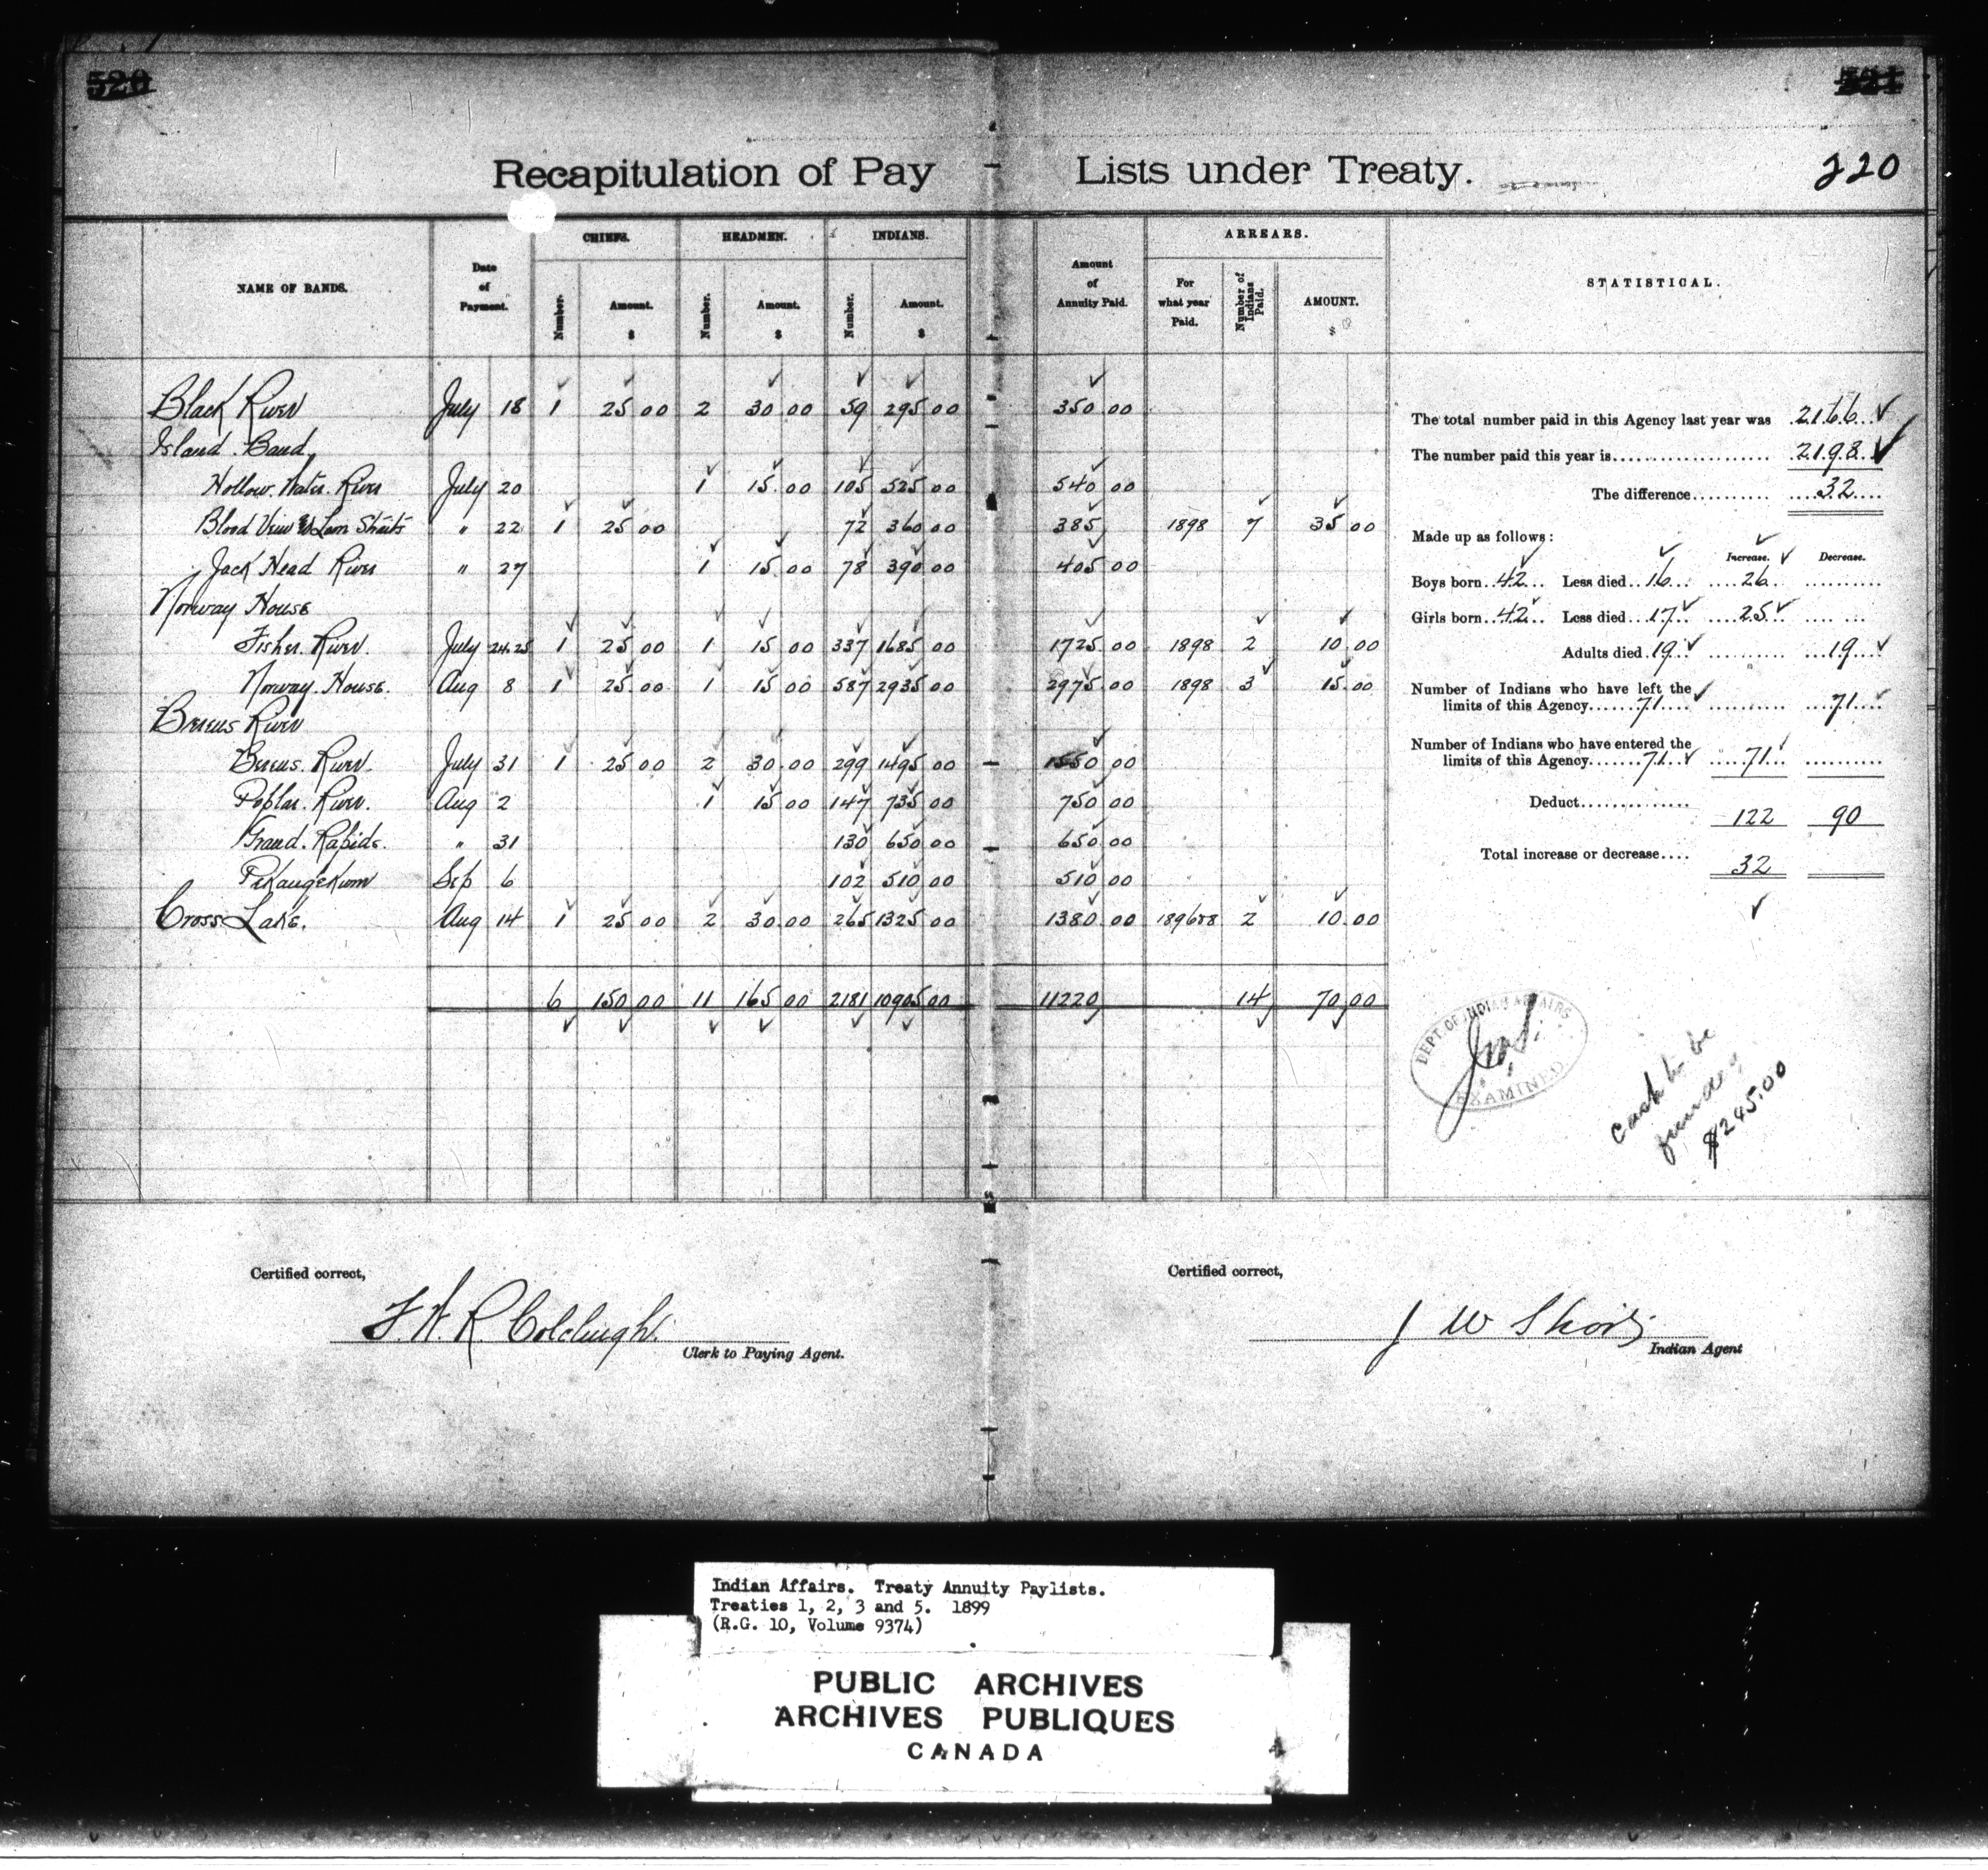 520
521
Recapitulation of Pay Lists under Treaty.
220
NAME OF BANDS. Date of Payment. CHIEFS. HEADMEN. INDIANS. Amount of Annuity Paid. ARREARS. STATISTICAL.
Number. Amount. $ Number. Amount. $ Number. Amount. $ For what year Paid. Number of Indians Paid. AMOUNT. $
Black River July 18 1 25 00 2 30 00 59 295 00 350 00
Island Band
Hollow Water River July 20 1 15 00 105 525 00 540 00
Blood Loon Straits " 22 1 25 00 72 360 00 385 1898 7 35 00
Jack Head River " 27 1 15 00 78 390 00 405 00
Norway House
Fisher River. July 24.25 1 25 00 1 15 00 337 1685 00 1725 00 1898 2 10 00
Norway House. Aug 8 1 25 00 1 15 00 587 2935 00 2975 00 1898 3 15 00
Bereus River
Bereus River July 31 1 25 00 2 30 00 299 1495 00 1550 00
Poplar River. Aug 2 1 15 00 147 735 00 750 00
Grand Rapids. " 31 130 650 00 650 00
Pekangekum Sep 6 102 510 00 510 00
Cross Lake. Aug 14 1 25 00 2 30 00 265 1325 00 1380 00 2 10 00
6 150 00 11 165 00 2181 10905 00 11220 14 70 00
The total number paid in this Agency last year was 2166
The number paid this year is 2198
The difference 32
Made up as follows:
Increase. Decrease.
Boys born 42 Less died 16 26
Girls born 42 Less died 17 25
Adults died 19 19
Number of Indians who have left the
limits of this Agency 71 71
Number of Indians who have entered the
limits of this Agency 71 71
Deduct 122 90
Total increase or decrease 32
DEPT. OF INDIAN AFFAIRS
EXAMINED
Cash to be
$245.00
Certified correct,
F. W. R. Colcleugh
Clerk to Paying Agent.
Certified correct,
J W Short
Indian Agent
Indian Affairs. Treaty Annuity Paylists.
Treaties 1, 2, 3 and 5. 1899
(R.G. 10, Volume 9374)
PUBLIC ARCHIVES
ARCHIVES PUBLIQUES
CANADA